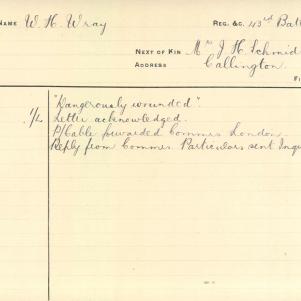 NAME W. H. Wray REG. &C. 43rd Batt
NEXT OF KIN Mrs J H Schmid
ADDRESS Callington.
"Dangerously wounded".
Letter acknowledged.
P/Cable forwarded Commrs London.
Reply from Commrs. Particulars sent Inqu